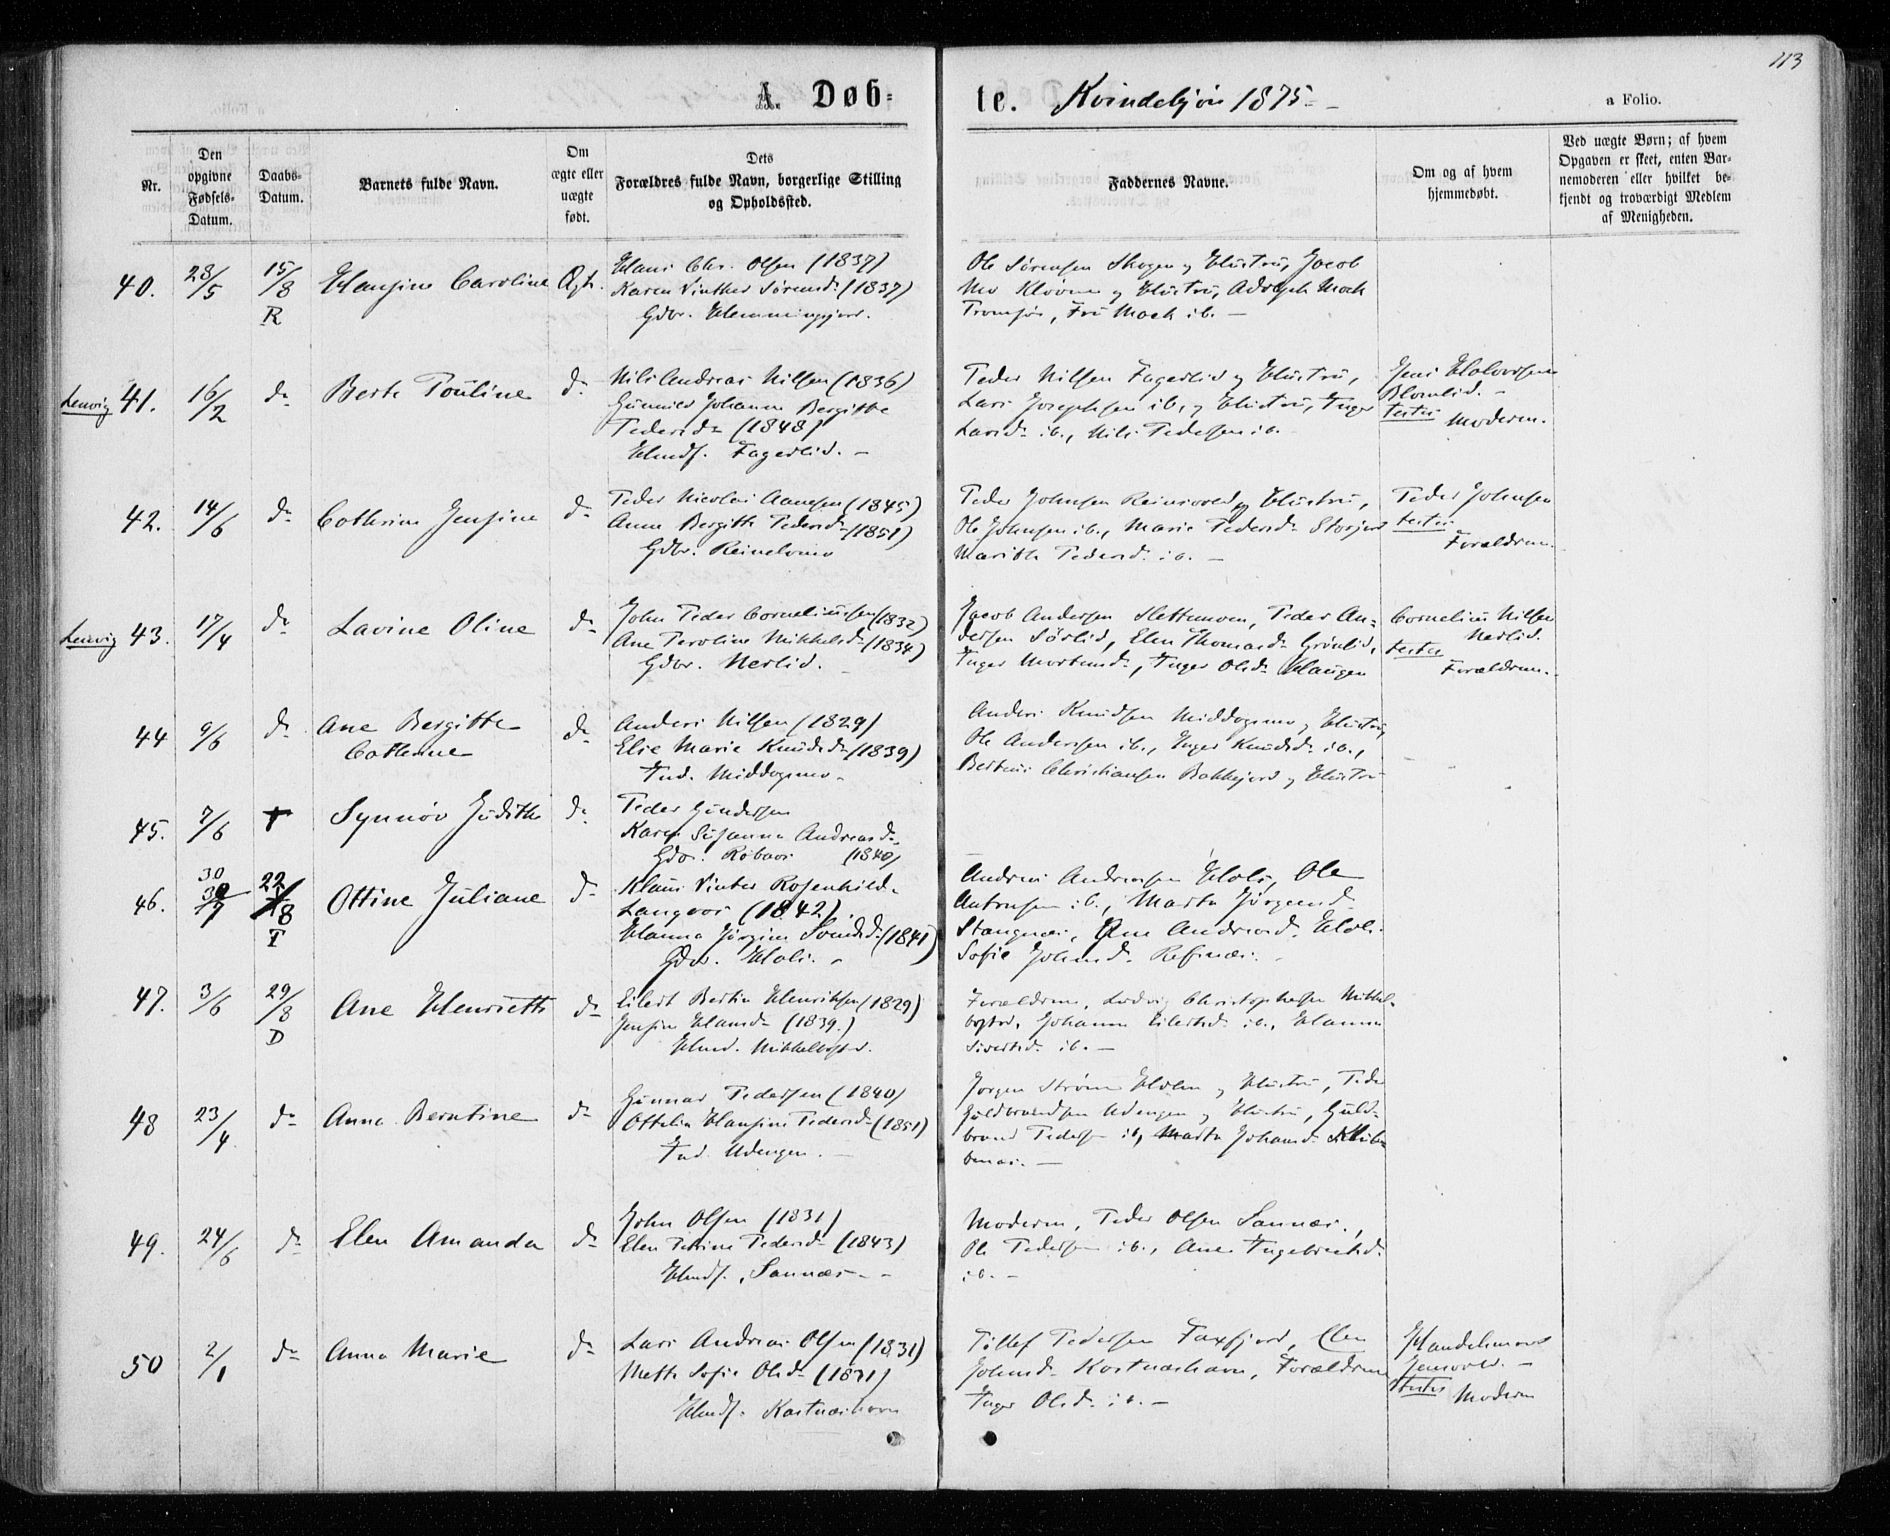 113
A. Døb=
te. Kvindekjøn 1875.
a Folio.
Nr.
Den
opgivne
Fødsels-
Datum.
Daabs-
Datum.
Barnets fulde Navn.
Om
ægte eller
uægte
født.
Dets
Forældres fulde Navn, borgerlige Stilling
og Opholdssted.
Faddernes Navne.
Om og af hvem
hjemmedøbt.
Ved uægte Børn; af hvem
Opgaven er skeet, enten Bar-
nemoderen eller hvilket be-
kjendt og troværdigt Medlem
af Menigheden.
40. 28/5 15/8 R Hansine Caroline Ægt.
Hans Chr. Olsen (1837)
Karen Vinther Sørensd. (1837)
Gdbr. Hemmingsjord.
Ole Sørensen Skogen og Hustru, Jacob
Mo Kløven og Hustru, Adolph Mack
Tromsø, Fru Mack ib. —
Lenvig 41. 16/2 do Berth Pouline do
Nils Andreas Nilsen (1836)
Gunnild Johanna Bergitte
Pedersd. (1848)
Hmdf. Fagerlid. —
Peder Nilsen Fagerlid og Hustru,
Lars Josephsen ib. og Hustru, Inger
Larsd. ib., Nils Pedersen ib.
Jens Halvorsen
Blomlid. —
testes
Moderen.
42. 14/6 do Cathrine Jensine do
Peder Nicolai Aanesen (1845)
Anne Bergitte Pedersd. (1851)
Gdbr. Reinelvmo
Peder Johnsen Reinsvold og Hustru,
Ole Johnsen ib., Marie Pedersd. Storjord
Marith Pedersd. ib. —
Peder Johnsen
testes
Forældrene.
Lenvig 43. 17/4 do Lavine Oline do
John Peder Corneliussen (1832)
Ane Peroline Mikkelsd. (1834)
Gdbr. Nerlid.
Jacob Andersen Slettemoen, Peder An=
dersen Sørlid, Elen Thomasd. Grønlid,
Inger Mortensd., Inger Olsd. Haugen
Cornelius Nilsen
Nerlid.
testes
Forældrene.
44 9/6 do Ane Bergitte
Cathrine do
Anders Nilsen (1829)
Elie Marie Knudsd. (1839)
Ind. Middagsmo.
Anders Knudsen Middagsmo og Hustru,
Ole Andersen ib., Inger Knudsd. ib.,
Bertheus Christiansen Bakkejord og Hustru
45. 7/6 † Synnøv Judithe do
Peder Gundersen
Karen Susanna Andreasd.
Gdbr. (1840)
46. 30 22/8 T Ottine Juliane do
Klaus Vinter Rosenhild
Langvor (1842).
Hanna Jørgine (1841)
Gdbr. Hals.
Andreas Andreassen Hals, Ole
ib., Marta Jørgensd.
Stangnæs, Ane Andreasd. Hals.
Sofie Johnsd. Refsnæs.
47. 3/6 29/8 D Ane Henriette do
Eilert Bertin Henriksen (1829)
Jensine Hansd. (1839.)
Hmd. Mikkelbostad.
Forældrene, Ludvig Christophersen Mikkel-
bostad, Johanna Eilertsd. ib., Hanna
Sivertsd. ib. —
48 23/4 do Anna Berntine do
Gunnar Pedersen (1840)
Ottelia Hansine Pedersd. (1851)
Ind. Udengen. —
Jørgen Strøm Holm og Hustru, Peder
Guldbrandsen Udengen og Hustru, Guld-
brand Pedersen ib., Marta Johansd.
49. 24/6 do Elen Amanda do
John Olsen (1831)
Elen Petrine Pedersd. (1843)
Hmdf. Sannæs. —
Moderen, Peder Olsen Sannæs.,
Ole Pedersen ib., Ane Ingebrictsd.
ib. —
50 2/1 do Anna Marie do
Lars Andreas Olsen (1831)
Mette Sofie Olsd. (1831)
Hmdf. Kastneshavn
Tollef Pedersen Faxfjord, Elen
Johnsd. Kastneshavn, Forældrene
Inger Olsd. ib. —
Handelsmand
Jensvold. —
testes
Moderen